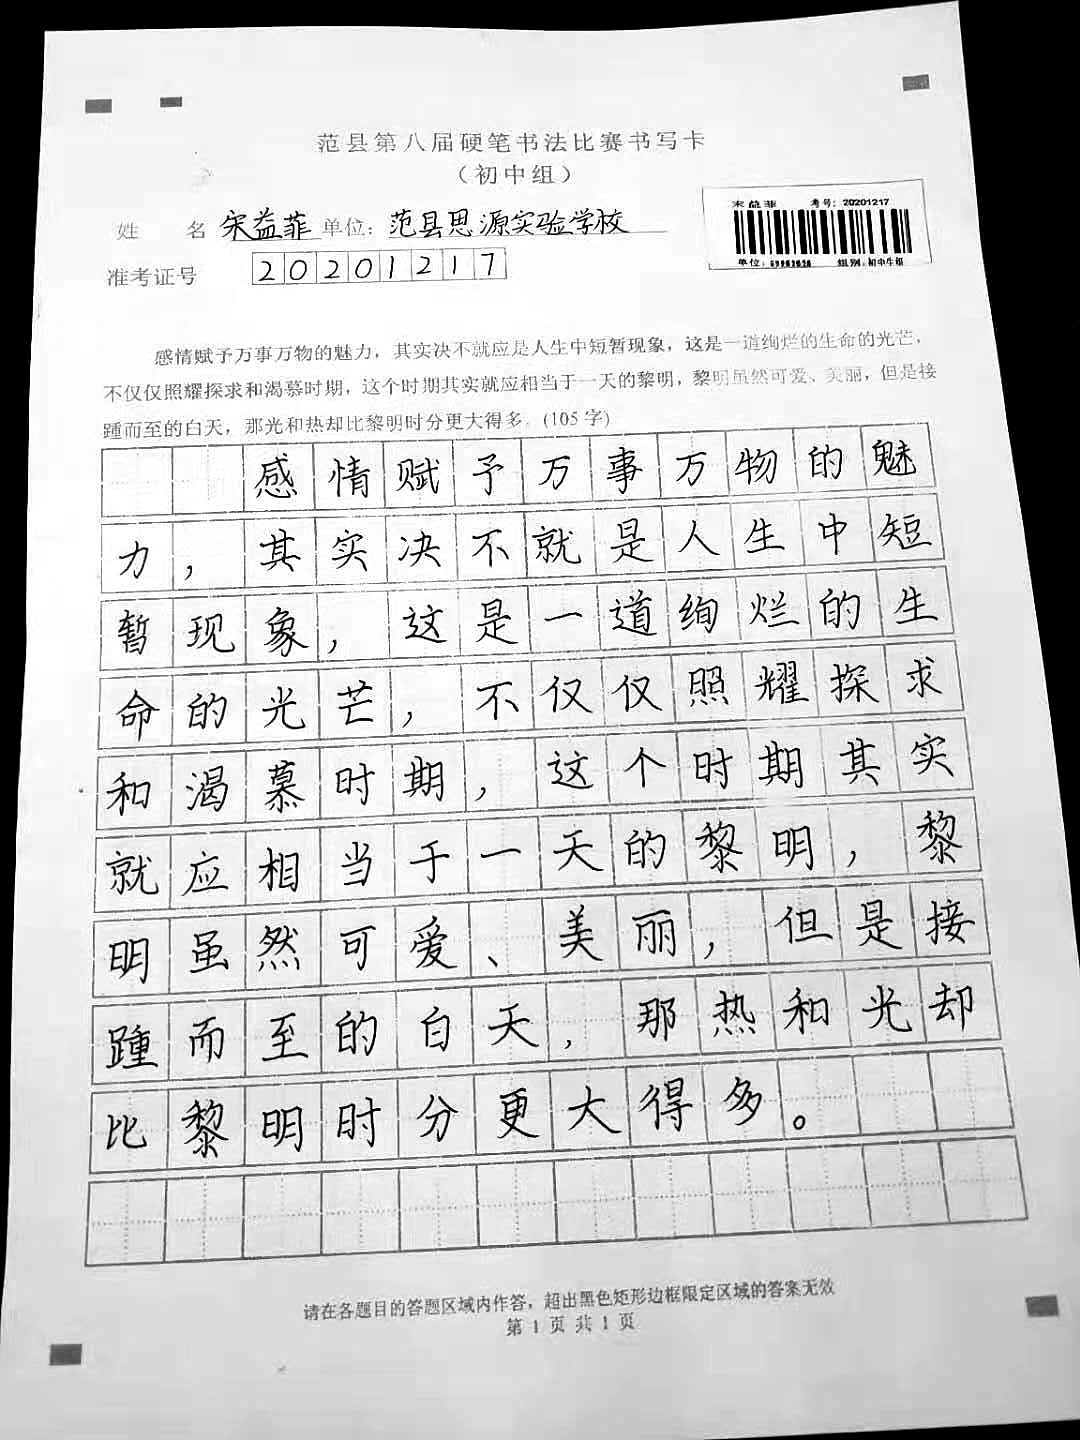 范县第八届硬笔书法比赛书写卡
（初中组）
宋益菲 考号：20201217
姓 名 宋益菲 单位：范县思源实验学校
组别：初中生组
准考证号 20201217
感情赋予万事万物的魅力，其实决不就应是人生中短暂现象，这是一道绚烂的生命的光芒，
不仅仅照耀探求和渴慕时期，这个时期其实就应相当于一天的黎明，黎明虽然可爱、美丽，但是接
踵而至的白天，那光和热却比黎明时分更大得多。(105 字)
感情赋予万事万物的魅
力，其实决不就是人生中短
暂现象，这是一道绚烂的生
命的光芒，不仅仅照耀探求
和渴慕时期，这个时期其实
就应相当于一天的黎明，黎
明虽然可爱、美丽，但是接
踵而至的白天，那热和光却
比黎明时分更大得多。
请在各题目的答题区域内作答，超出黑色矩形边框限定区域的答案无效
第 1 页 共 1 页